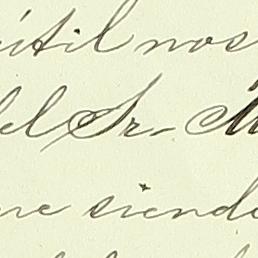 útil nos
del Sr.
ne siendo